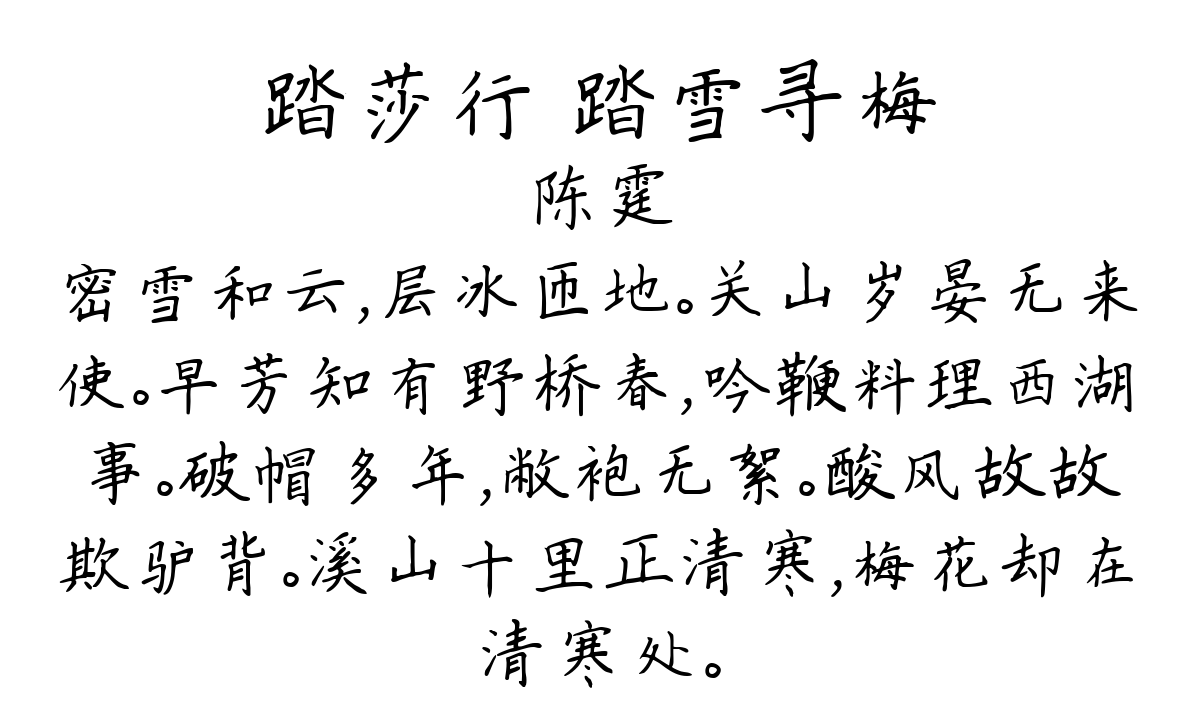 踏莎行 踏雪寻梅
陈霆
密雪和云,层冰匝地。关山岁晏无来
使。早芳知有野桥春,吟鞭料理西湖
事。破帽多年,敝袍无絮。酸风故故
欺驴背。溪山十里正清寒,梅花却在
清寒处。